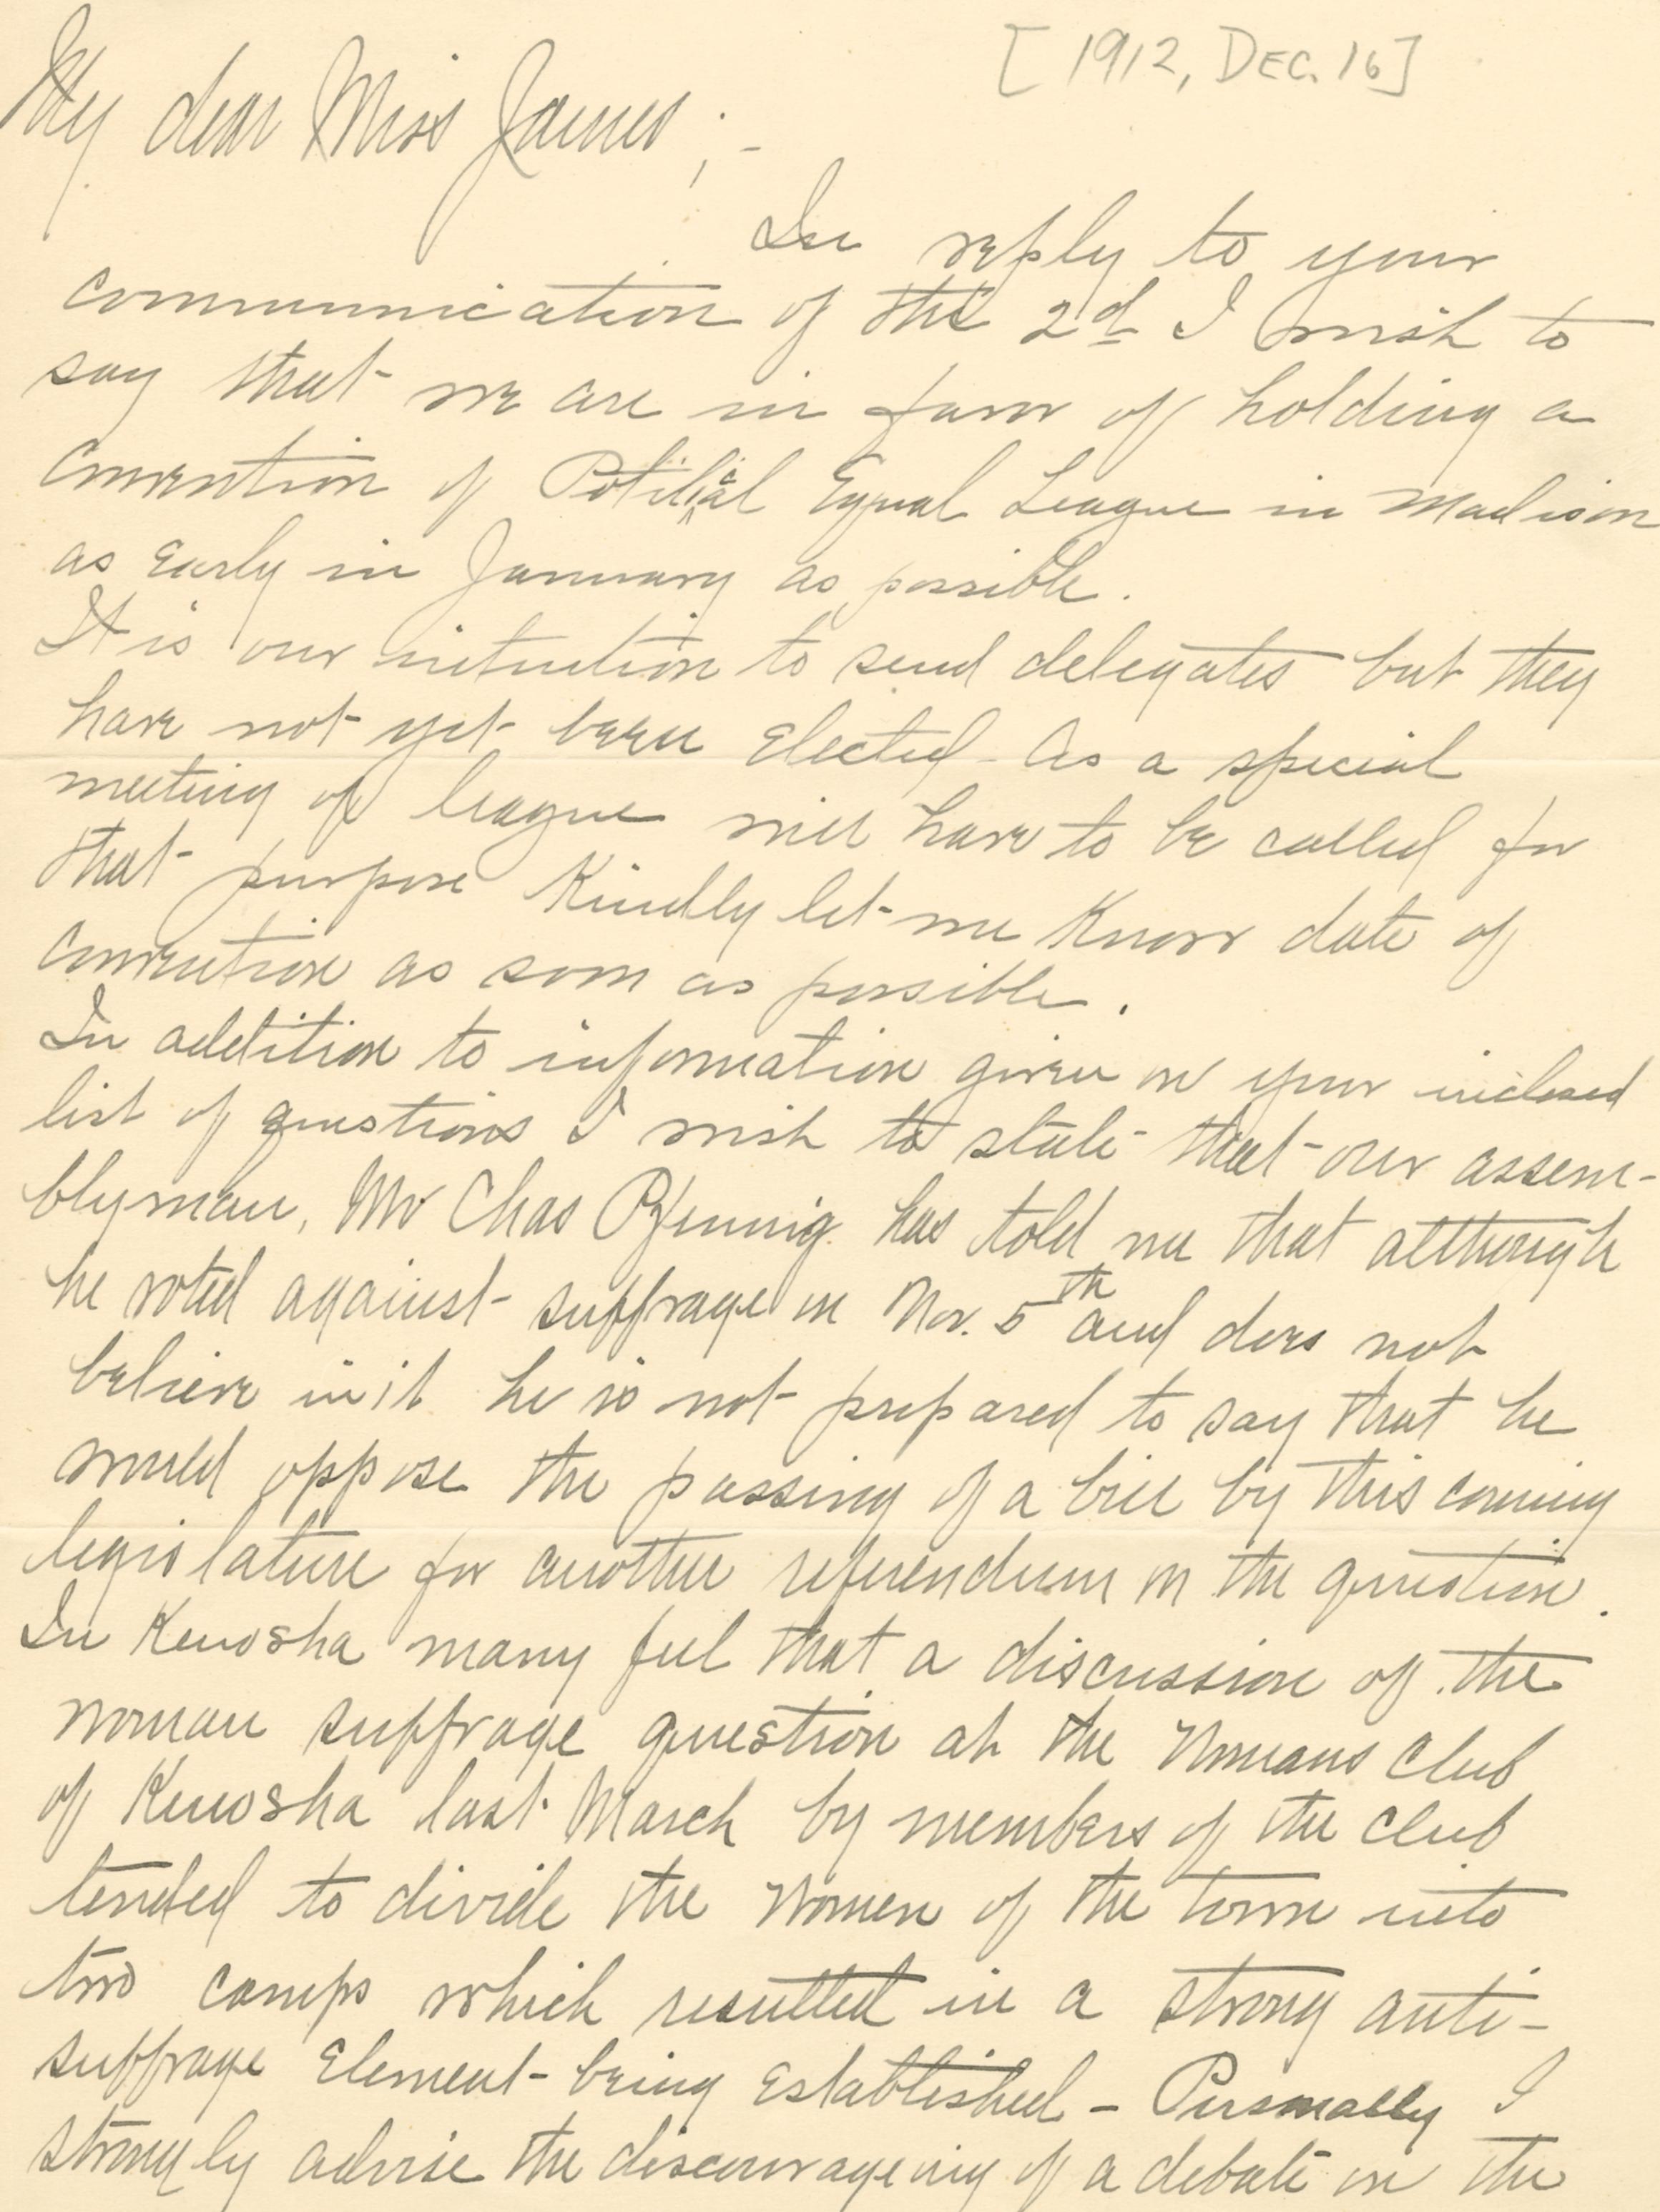 [1912, DEC. 16]
My dear Miss James;-
In reply to your
communication of the 2d I wish to
say that we are in favor of holding a
convention of Political Equal League in Madison
as early in January as possible.
It is our intention to send delegates but they
have not yet been elected - As a special
meeting of league will have to be called for
that purpose Kindly let me Know date of
convention as soon as possible.
In addition to information given on your inclosed
list of questions I wish to state that our assem-
blyman, Mr Chas Pfennig has told me that although
he voted against suffrage on Nov. 5th and does not
believe in it he is not prepared to say that he
would oppose the passing of a bill by this coming
legislature for another referendum on the question.
In Kenosha many feel that a discussion of the
woman suffrage question at the Womans Club
of Kenosha last March by members of the club
tended to divide the women of the town into
two camps which resulted in a strong anti-
suffrage element being established - Personally I
strongly advise the discourageing of a debate on the